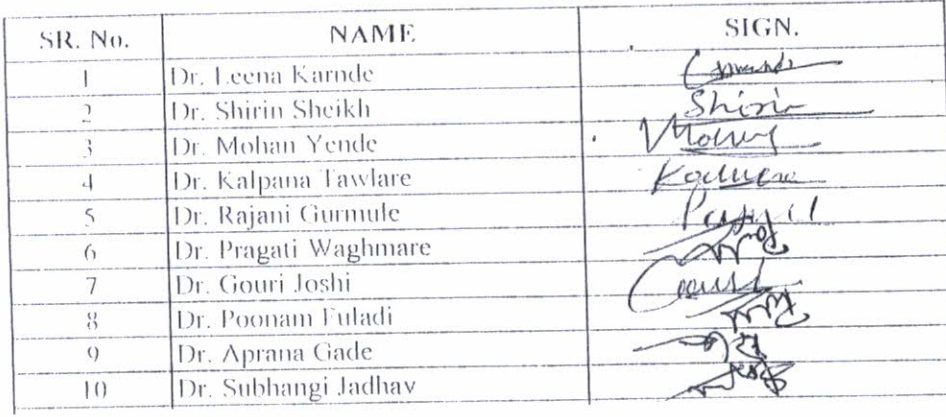 SR. No. NAME SIGN.
1 Dr. Leena Karnde
2 Dr. Shirin Sheikh Shirin
3 Dr. Mohan Yende
4 Dr. Kalpana Tawlare
5 Dr. Rajani Gurmule
6 Dr. Pragati Waghmare
7 Dr. Gouri Joshi
8 Dr. Poonam Fuladi
9 Dr. Aprana Gade
10 Dr. Subhangi Jadhav